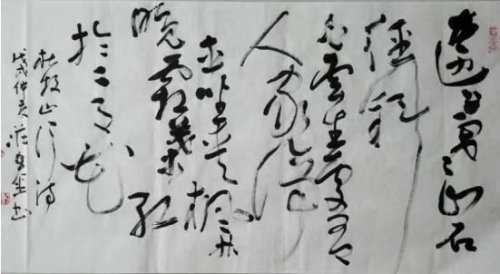 遠上寒山石
徑斜
白雲生處有
人家停
車坐愛楓林
晚霜葉紅
於二月花
杜牧山行詩
戊戌仲夏 書